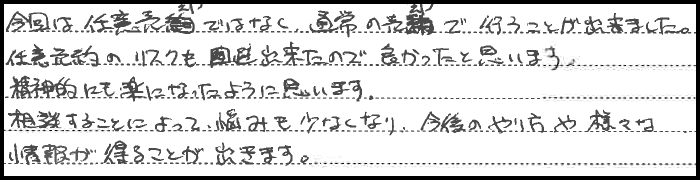 今回は任意売却ではなく、通常の売却で行うことが出来ました。
任意売却のリスクも回避出来たので良かったと思います。
精神的にも楽になったように思います。
相談することによって、悩みも少なくなり、今後のやり方や様々な
情報が得ることが出きます。